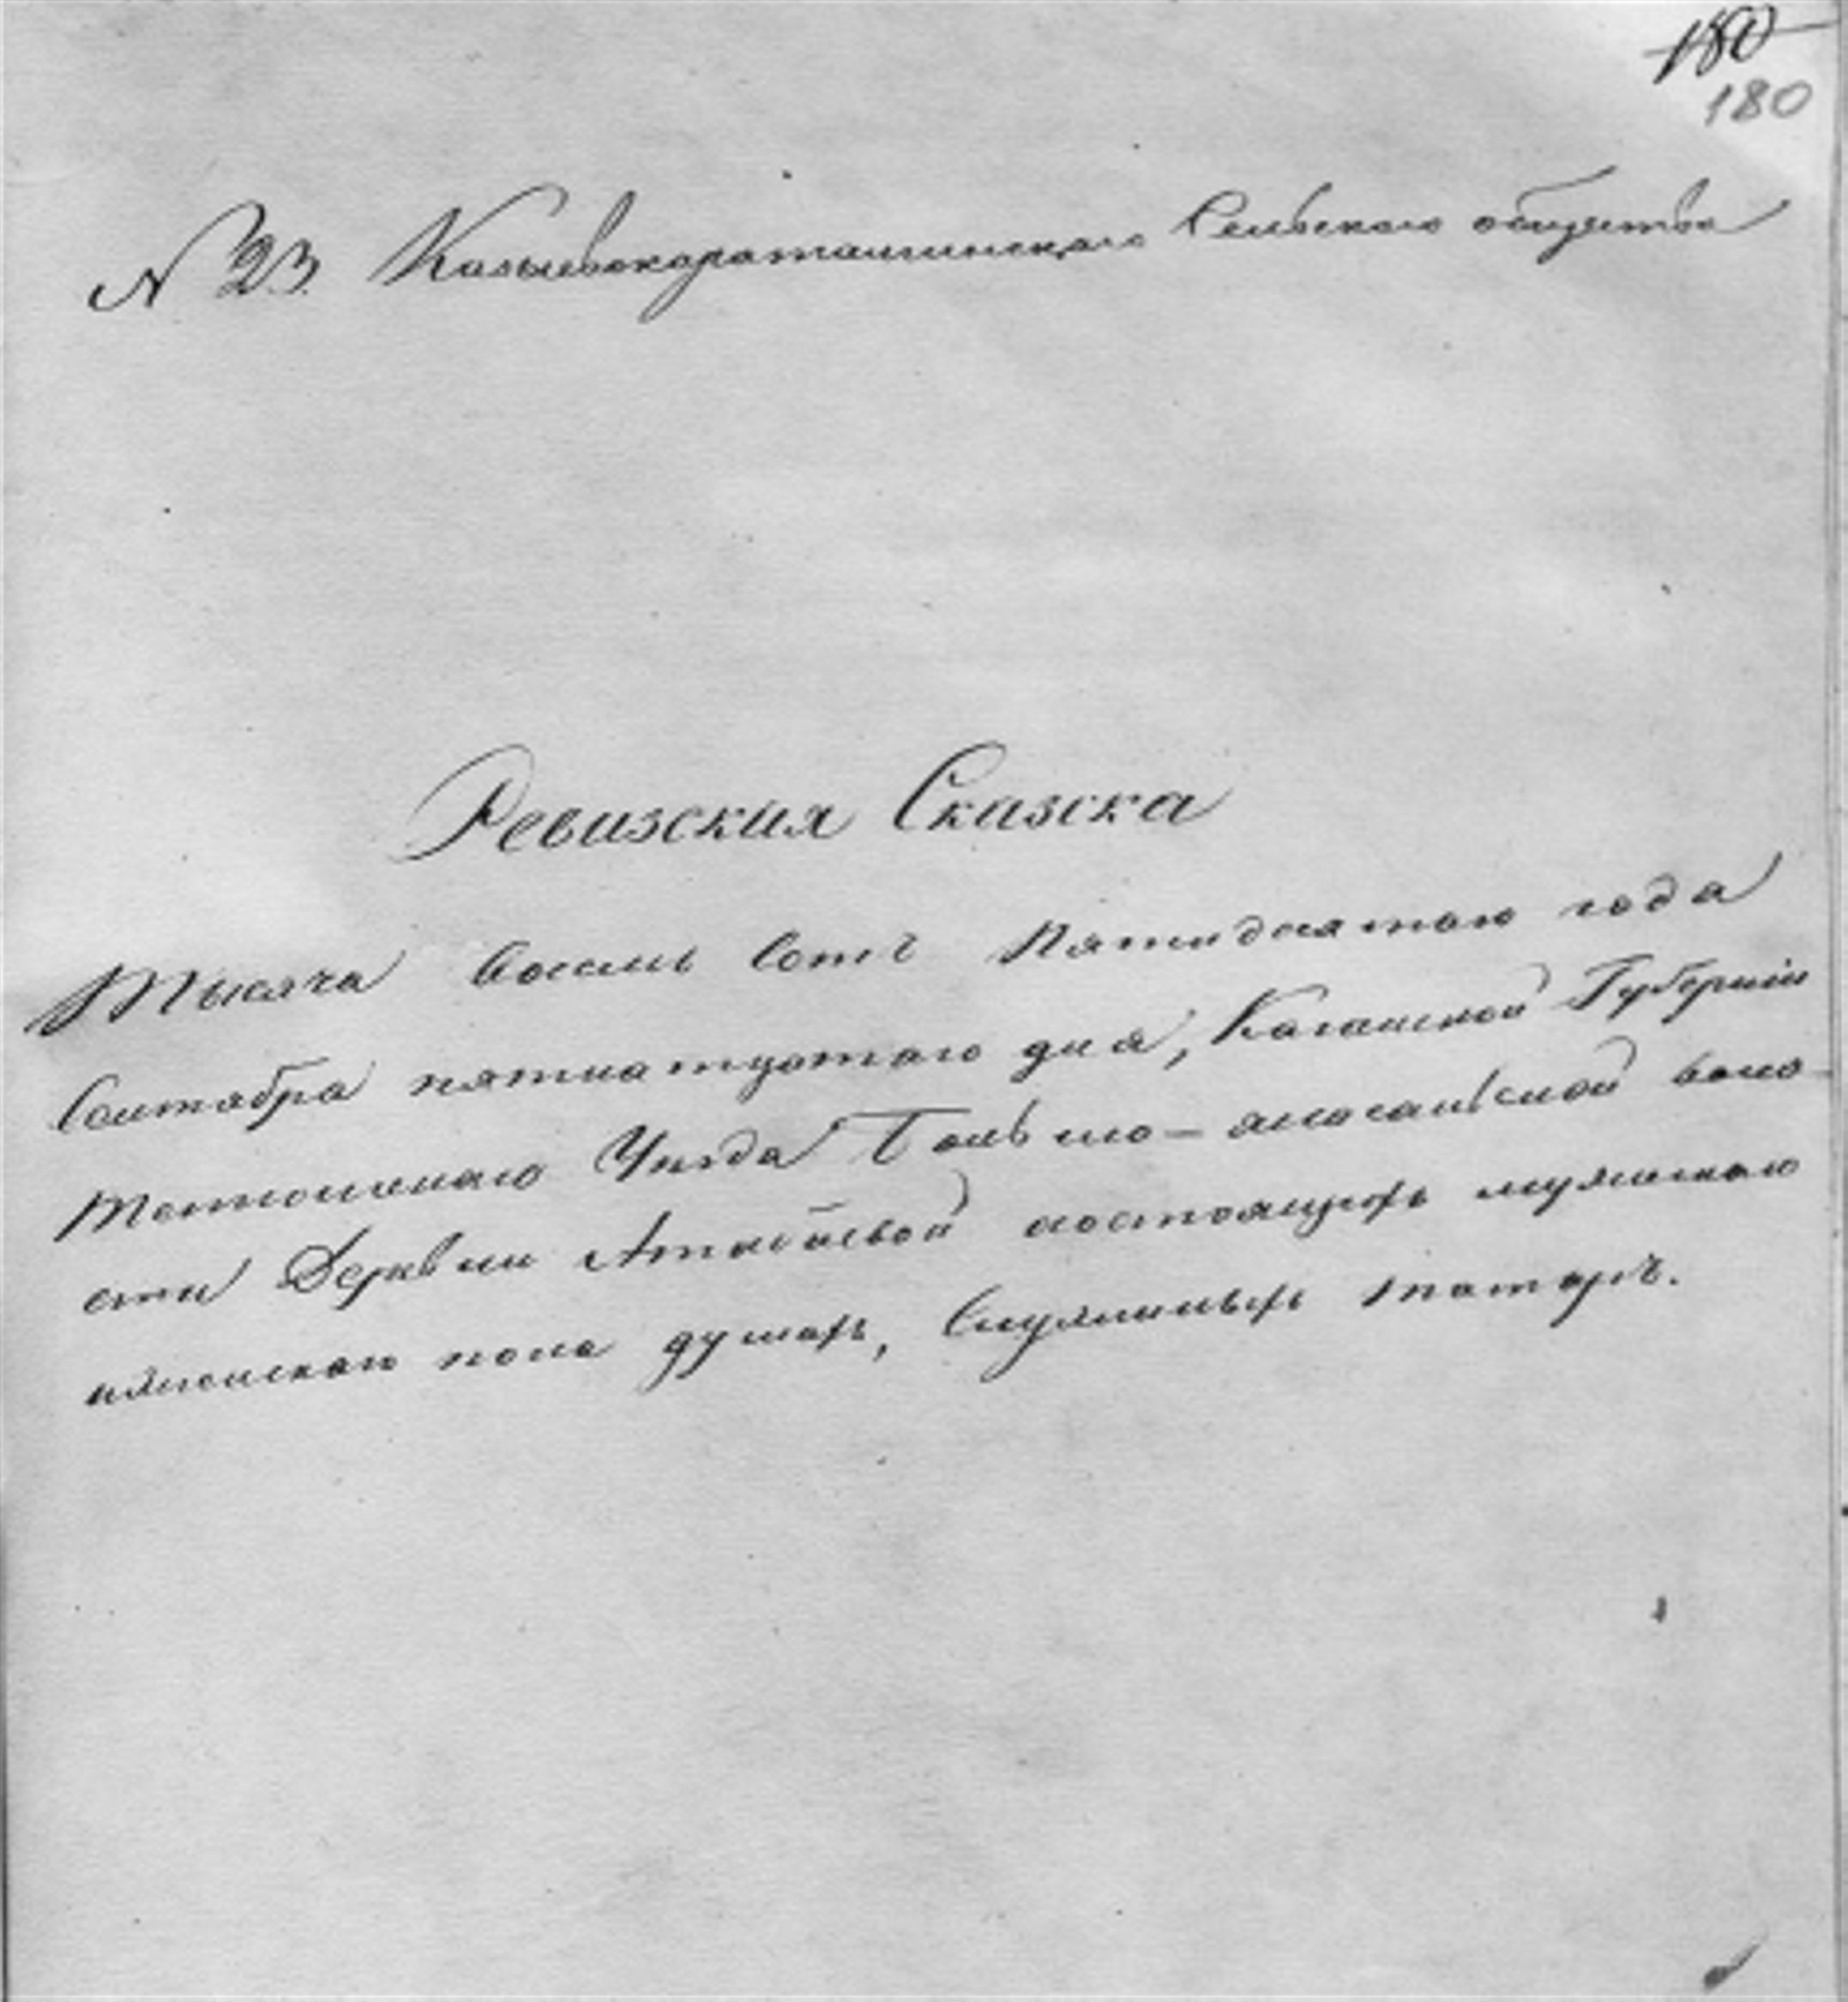 180
180
N 23. Сельского общества
Ревизская Сказка
Тысяча восемь сотъ пятидесятаго года
Сентября пятнатцатаго дня, Казанской Губерніи
Тетюшскаго Уезда Больше-атрясьской воло-
сти Деревни состоящихъ мужескаго
и женскаго пола душахъ, Служилыхъ татаръ.